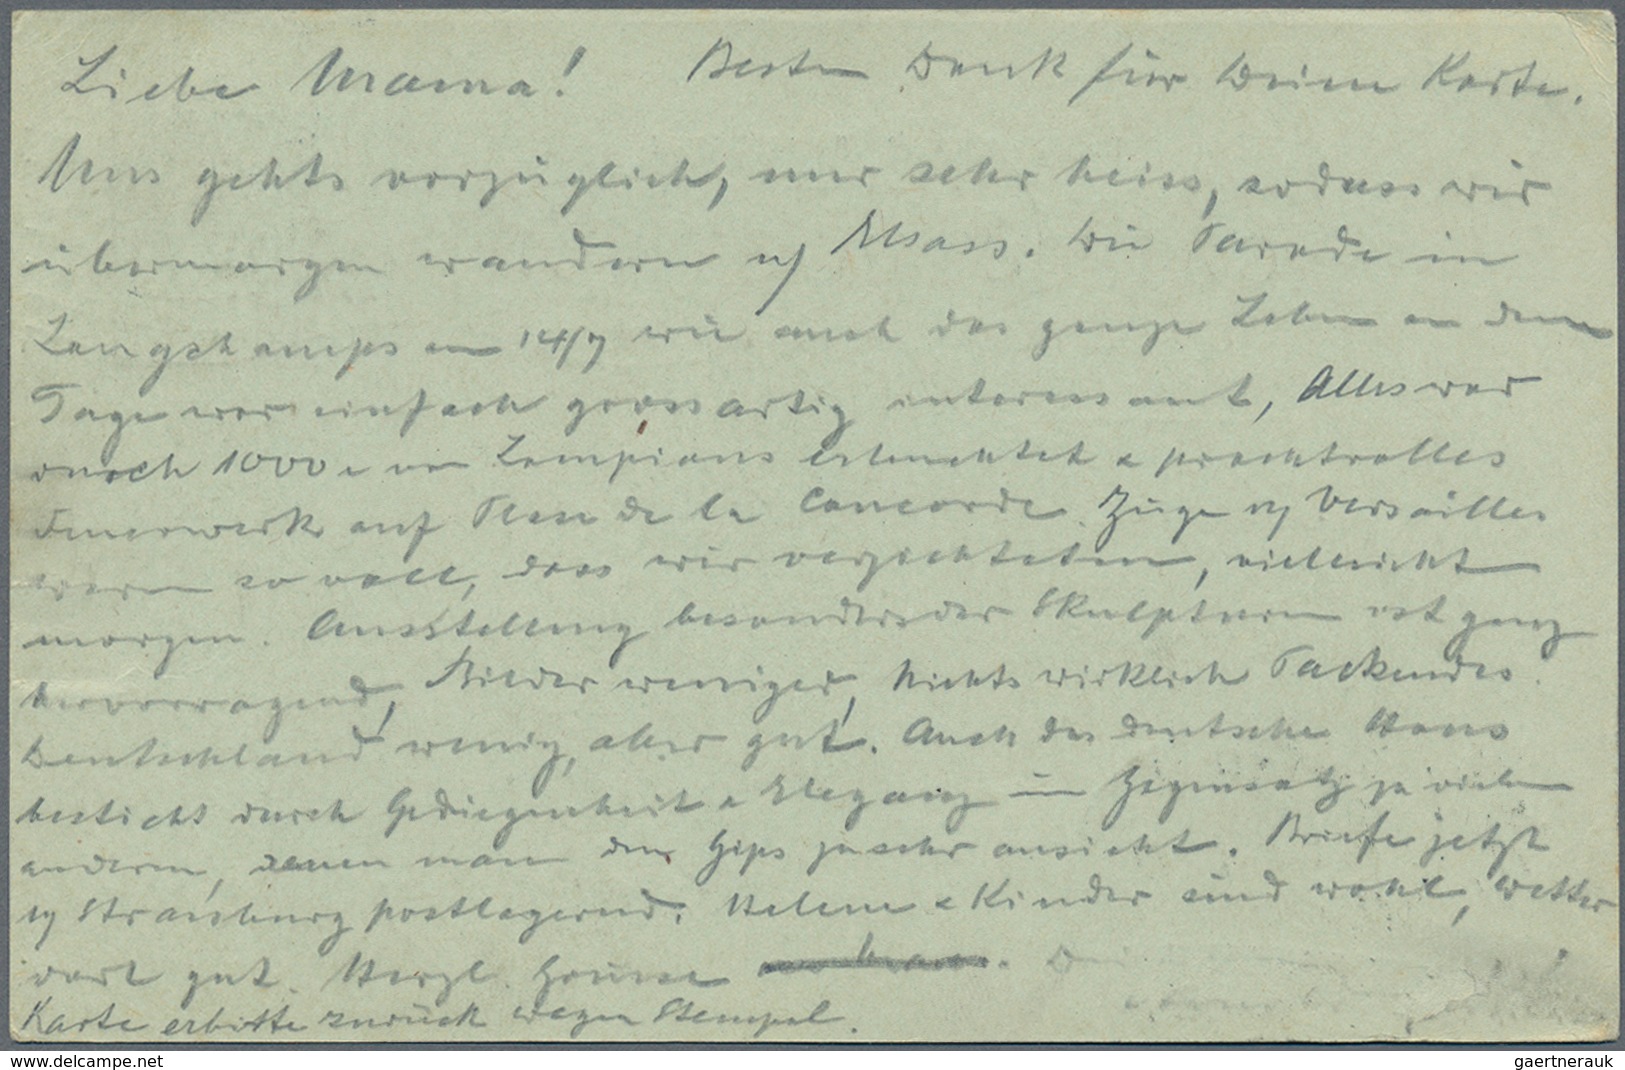 Liebe Mama! Besten Dank für Deine Karte.
Uns gehts vorzüglich, nur sehr heiss, sodass wir
übermorgen wandern n/ Elsass. Die Parade in
Longchamps am 14/7 wie auch das ganze Leben an dem
Tage war einfach grossartig interessant, Alles war
durch 1000e von Lampions erleuchtet & prachtvolles
Feuerwerk auf Place de la Concorde. Züge n/ Versailles
waren so voll, dass wir verzichteten, vielleicht
morgen. Ausstellung besonders der Skulpturen ist ganz
hervorragend, Bilder weniger, Nichts wirklich Packendes.
Deutschland wenig, aber gut. Auch das deutsche Haus
besticht durch Gediegenheit & Eleganz im Gegensatz zu vielen
anderen, denen man den Gips zu sehr ansieht. Briefe jetzt
n/ Strassburg postlagernd. Helene & Kinder sind wohl, Wetter
dort gut. Herzl. Grüsse
Karte erbitte zurück wegen Stempel.
www.delcampe.net
gaertnerauk